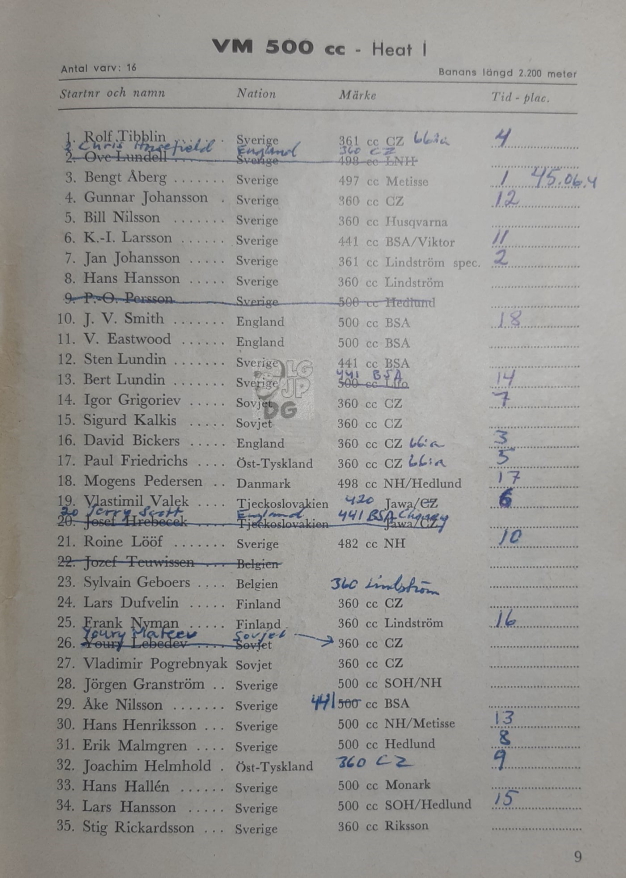 VM 500 cc - Heat I
Antal varv: 16 Banans längd 2.200 meter
Startnr och namn Nation Märke Tid - plac.
1. Rolf Tibblin Sverige 361 cc CZ 4
2 Chris Horsefield England 360 CZ
2. Ove Lundell Sverige 498 cc LNH
3. Bengt Åberg Sverige 497 cc Metisse 1 45.06.4
4. Gunnar Johansson . Sverige 360 cc CZ 12
5. Bill Nilsson ...... Sverige 360 cc Husqvarna
6. K.-I. Larsson ..... Sverige 441 cc BSA/Viktor 11
7. Jan Johansson .... Sverige 361 cc Lindström spec. 2
8. Hans Hansson .... Sverige 360 cc Lindström
9. P.-O. Persson Sverige 500 cc Hedlund
10. J. V. Smith ....... England 500 cc BSA 18
11. V. Eastwood ..... England 500 cc BSA
12. Sten Lundin ...... Sverige 441 cc BSA
441 BSA
13. Bert Lundin ...... Sverige 500 cc Lito 14
14. Igor Grigoriev .... Sovjet 360 cc CZ 7
15. Sigurd Kalkis .... Sovjet 360 cc CZ
16. David Bickers .... England 360 cc CZ 3
17. Paul Friedrichs ... Öst-Tyskland 360 cc CZ 5
18. Mogens Pedersen .. Danmark 498 cc NH/Hedlund 17
19. Vlastimil Valek .... Tjeckoslovakien 420 Jawa/CZ 6
20 Jerry Scott England 441 BSA
20. Josef Hrebecek ... Tjeckoslovakien Jawa/CZ
21. Roine Lööf ....... Sverige 482 cc NH 10
22. Jozef Teuwissen ... Belgien
23. Sylvain Geboers ... Belgien 360 Lindström
24. Lars Dufvelin ..... Finland 360 cc CZ
25. Frank Nyman ..... Finland 360 cc Lindström 16
Youry Mateev Sovjet
26. Youry Lebedev .... Sovjet 360 cc CZ
27. Vladimir Pogrebnyak Sovjet 360 cc CZ
28. Jörgen Granström .. Sverige 500 cc SOH/NH
29. Åke Nilsson ...... Sverige 441 500 cc BSA
30. Hans Henriksson ... Sverige 500 cc NH/Metisse 13
31. Erik Malmgren .... Sverige 500 cc Hedlund 8
32. Joachim Helmhold . Öst-Tyskland 360 CZ 9
33. Hans Hallén ...... Sverige 500 cc Monark
34. Lars Hansson ..... Sverige 500 cc SOH/Hedlund 15
35. Stig Rickardsson ... Sverige 360 cc Riksson
9